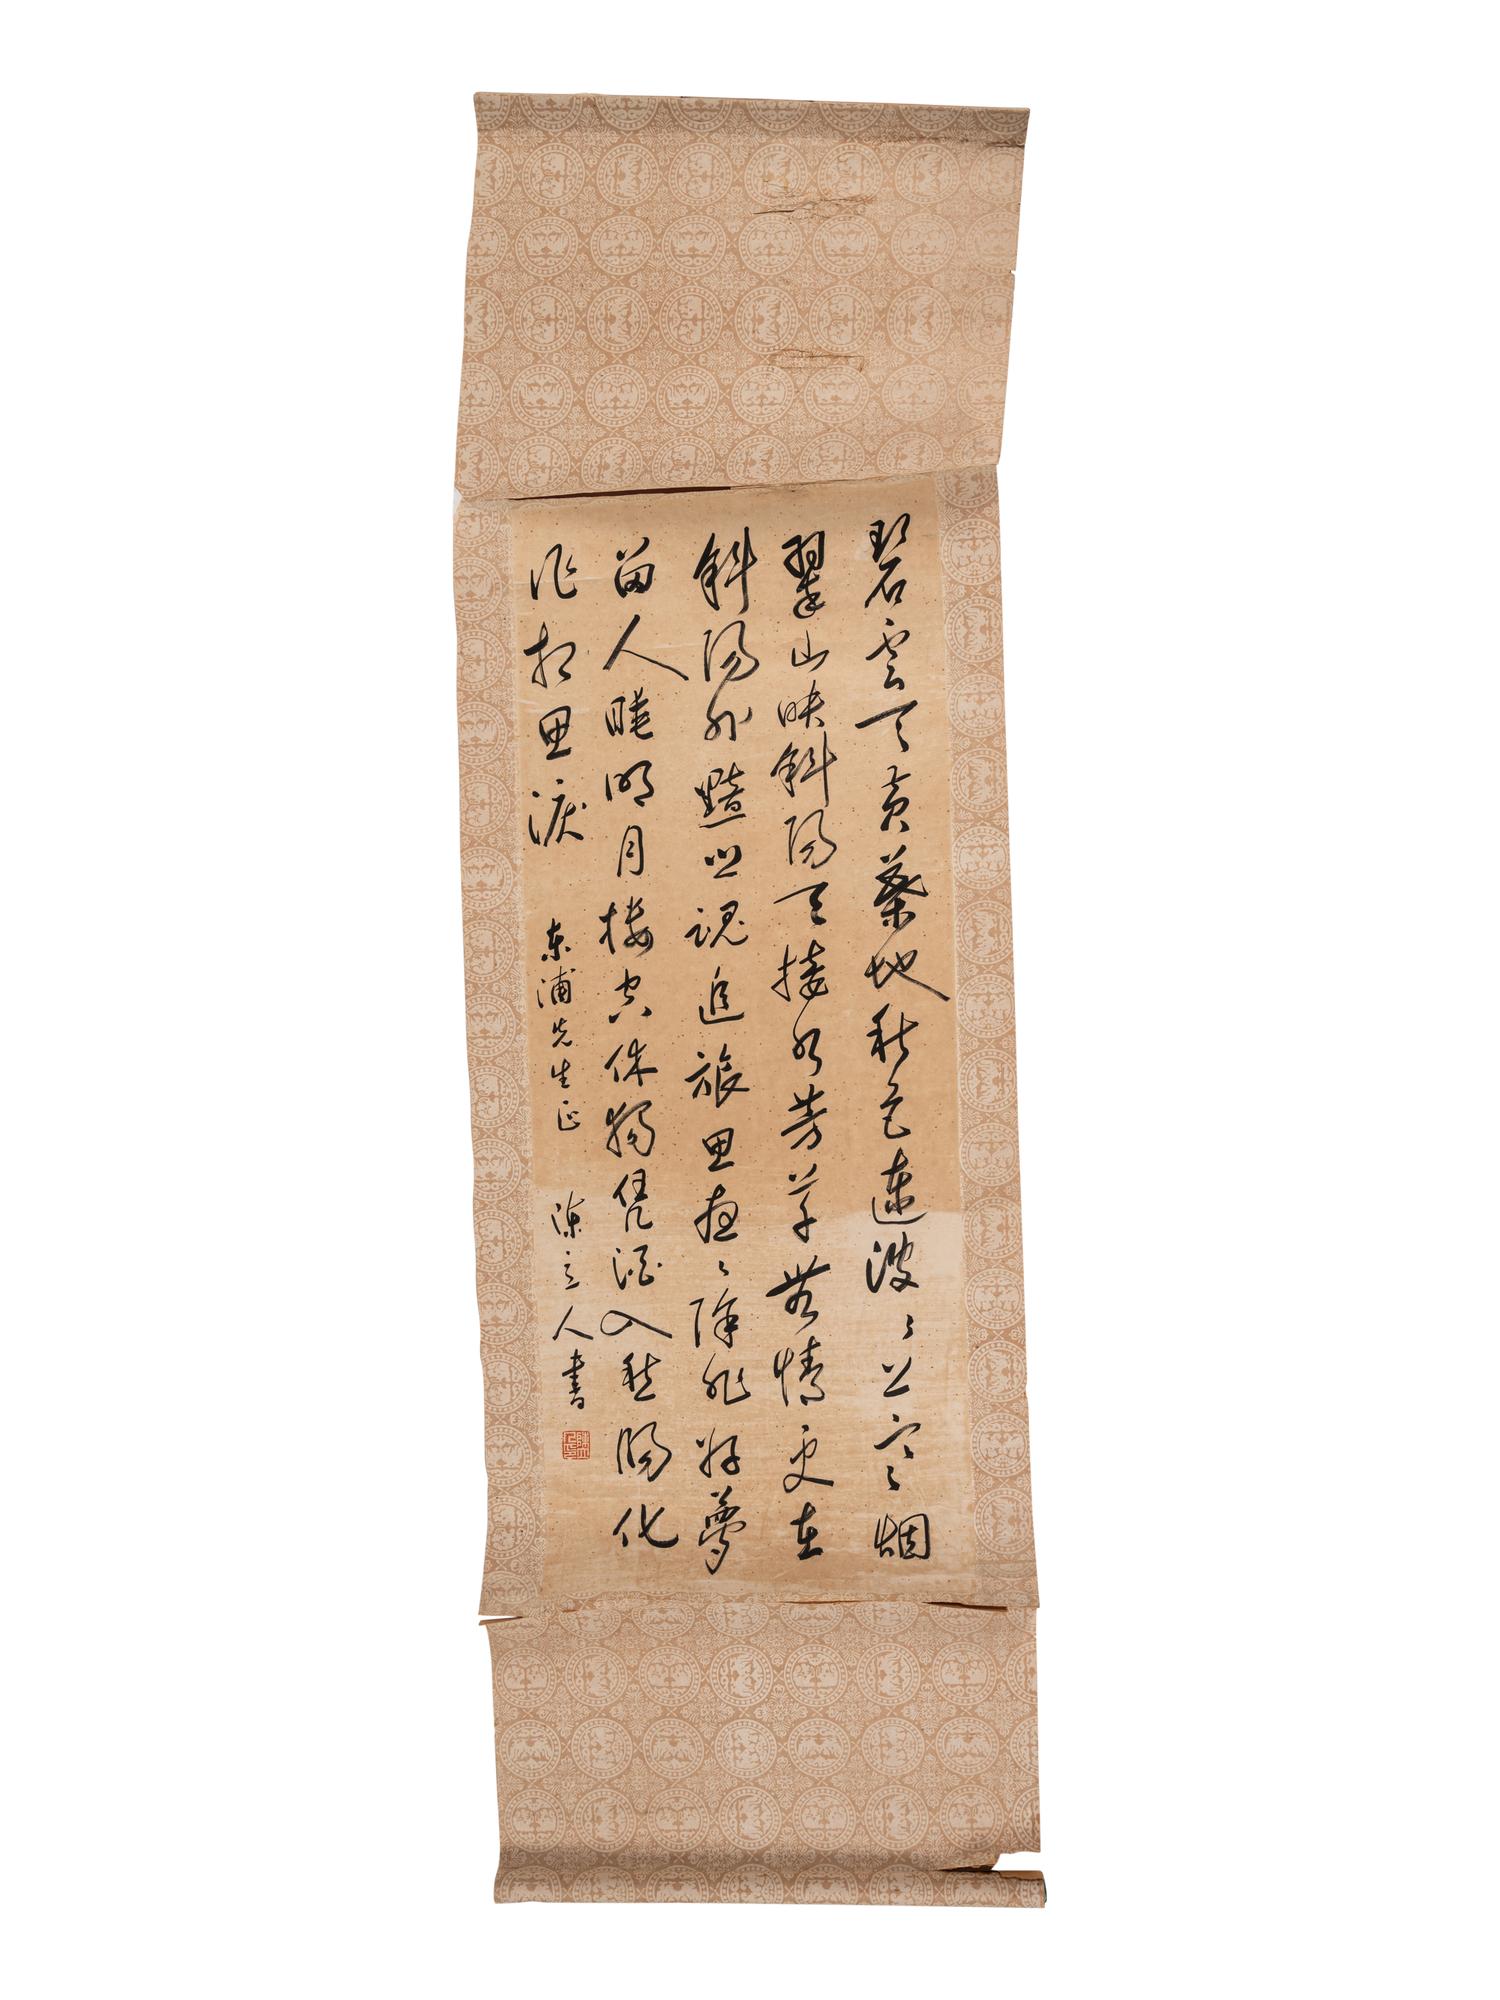 碧雲天黃葉地秋色連波々上寒烟
翠山映斜陽天接水芳草無情更在
斜陽外黯鄉魂追旅思夜々除非好夢
留人睡明月樓高休獨凭酒入愁腸化
作相思淚
东浦先生正
陳立人書